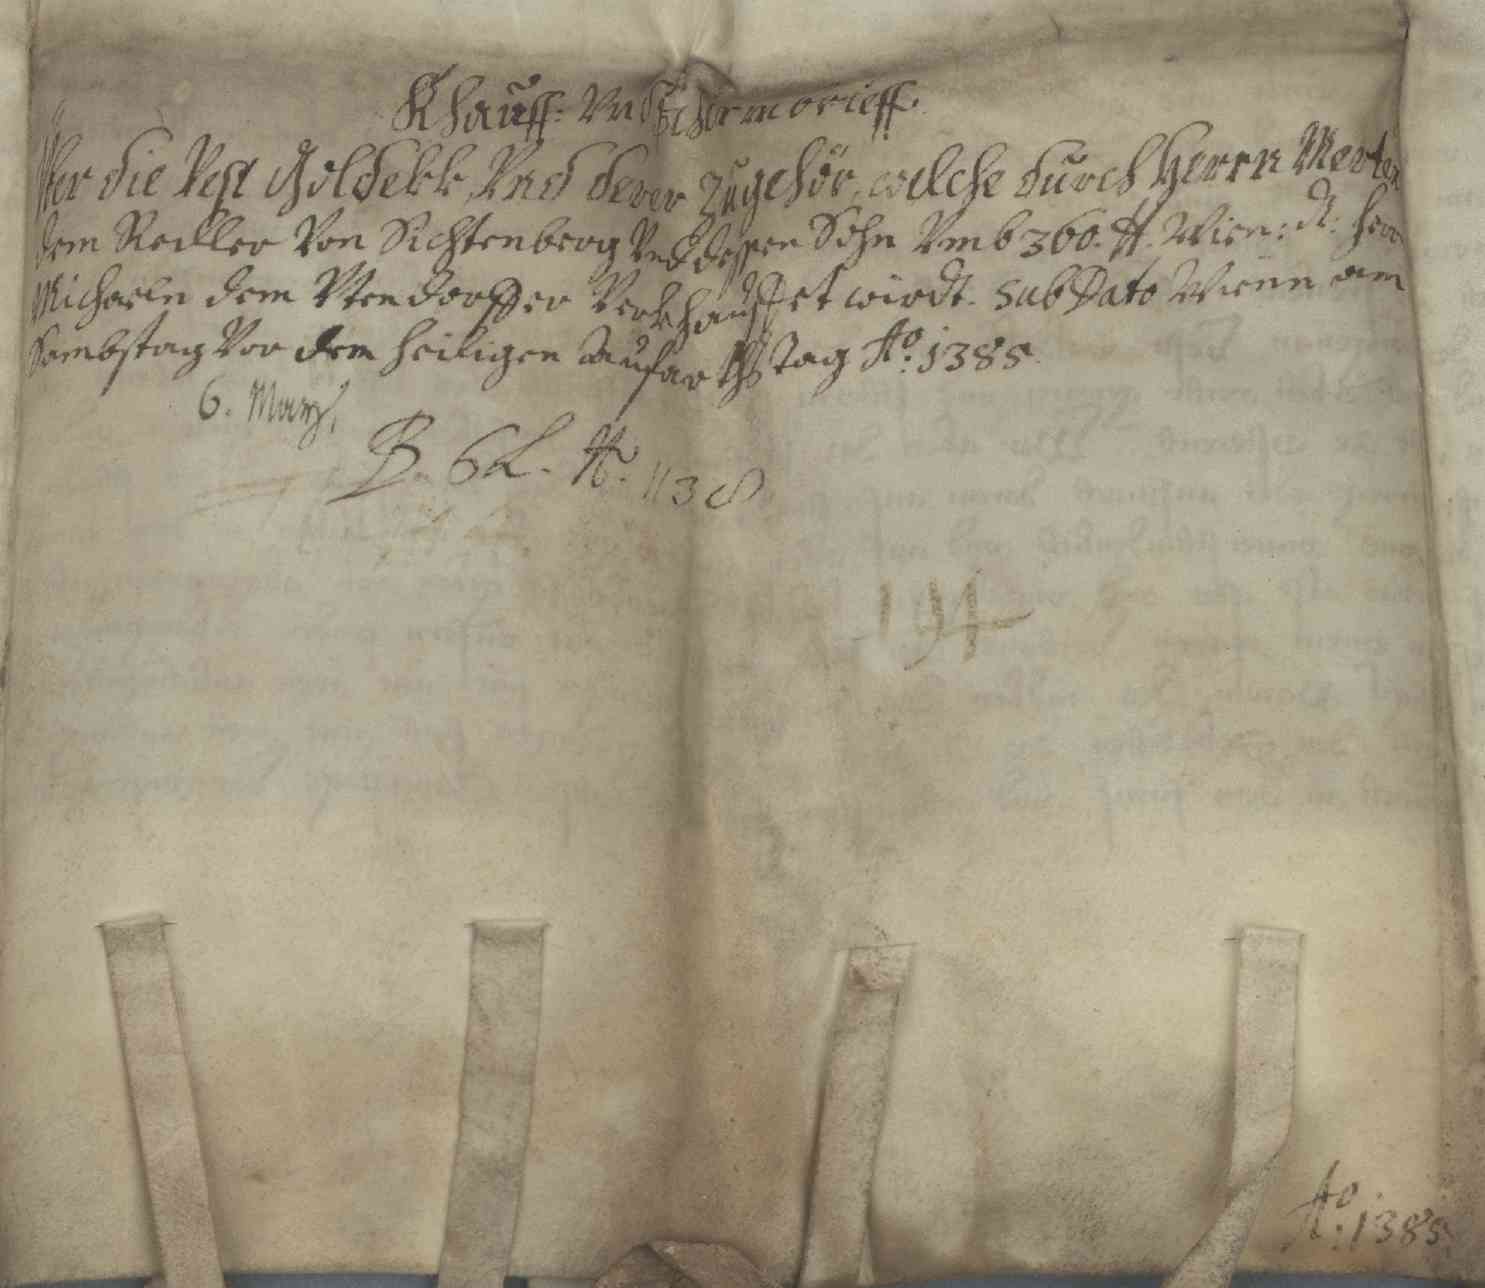 Khauff: Vnd Schermbrieff.
Vber die Vest Goldekk, Vnd derer Zugehör, welche durch Herrn Merten
dem Redler Von Sichtenberg Vnd dessen Sohn Vmb 360. ℔. Wien: dl: Herr
Michaeln dem Vtendorffer Verkhauffet wirdt. Sub Dato Wienn am
Sambstag Vor dem heiligen Auffarthstag Ao: 1385.
6. Martz.
B. 62. No. 1138
194
Ao: 1385.